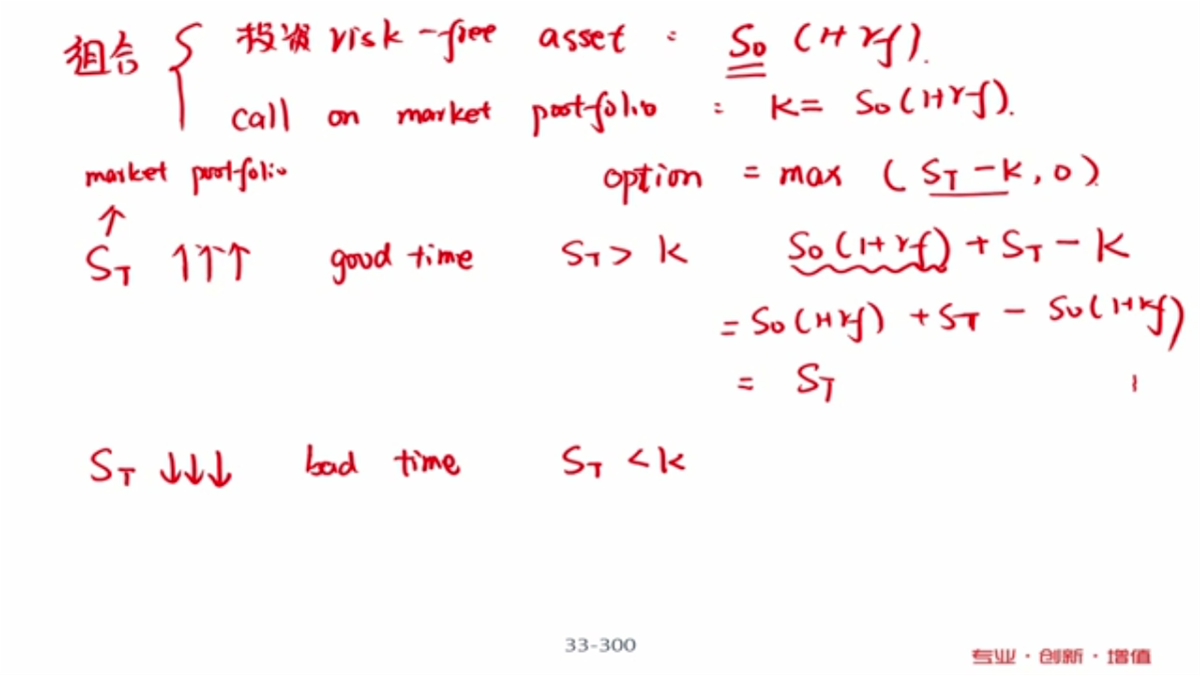 组合 { 投资 risk-free asset : S₀ (1+rf).
call on market portfolio : K = S₀(1+rf).
market portfolio option = max ( S_T - K, 0 )
↑
S_T ↑↑↑ good time S_T > K S₀(1+rf) + S_T - K
= S₀(1+rf) + S_T - S₀(1+rf)
= S_T
S_T ↓↓↓ bad time S_T < K
33-300
专业 · 创新 · 增值